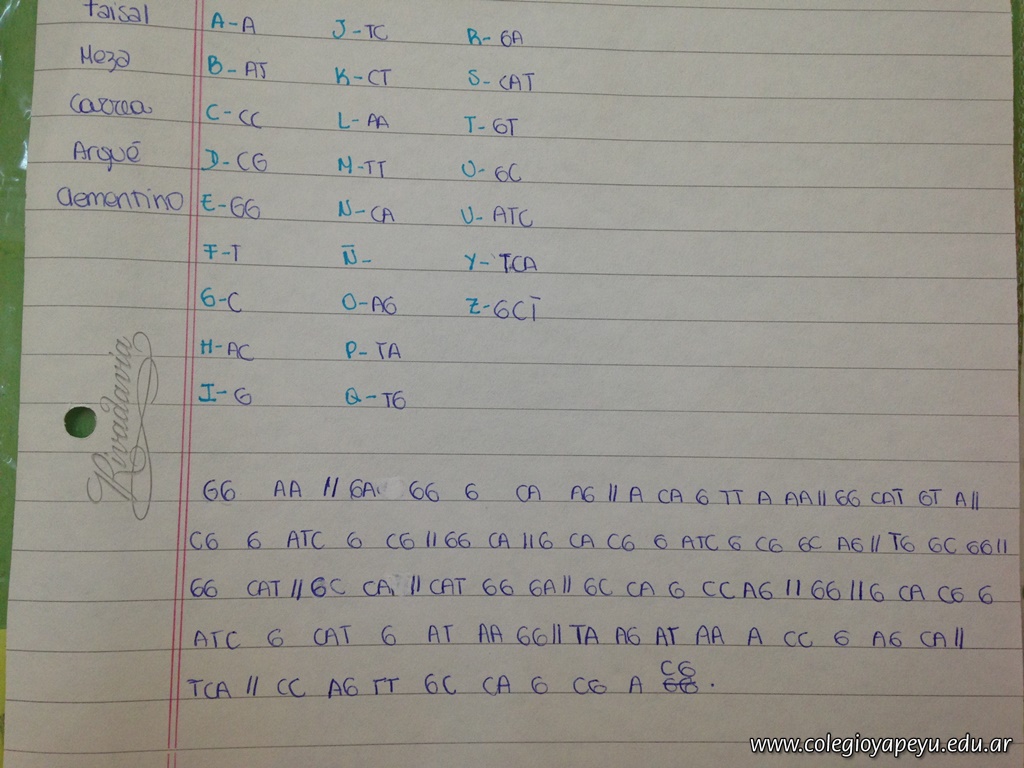 Faisal A-A J-TC R-GA
Meza B-AT K-CT S-CAT
Correa C-CC L-AA T-GT
Argué D-CG M-TT U-GC
Clementino E-GG N-CA V-ATC
F-T Ñ- Y-TCA
G-C O-AG Z-GCT
H-AC P-TA
I-G Q-TG
Rivadavia
GG AA // GA GG G CA AG // A CA G TT A AA // GG CAT GT A //
CG G ATC G CG // GG CA // G CA CG G ATC G CG GC AG // TG GC GG //
GG CAT // GC CA // CAT GG GA // GC CA G CC AG // GG // G CA CG G
ATC G CAT G AT AA GG // TA AG AT AA A CC G AG CA //
TCA // CC AG TT GC CA G CG A CG GG .
www.colegioyapeyu.edu.ar